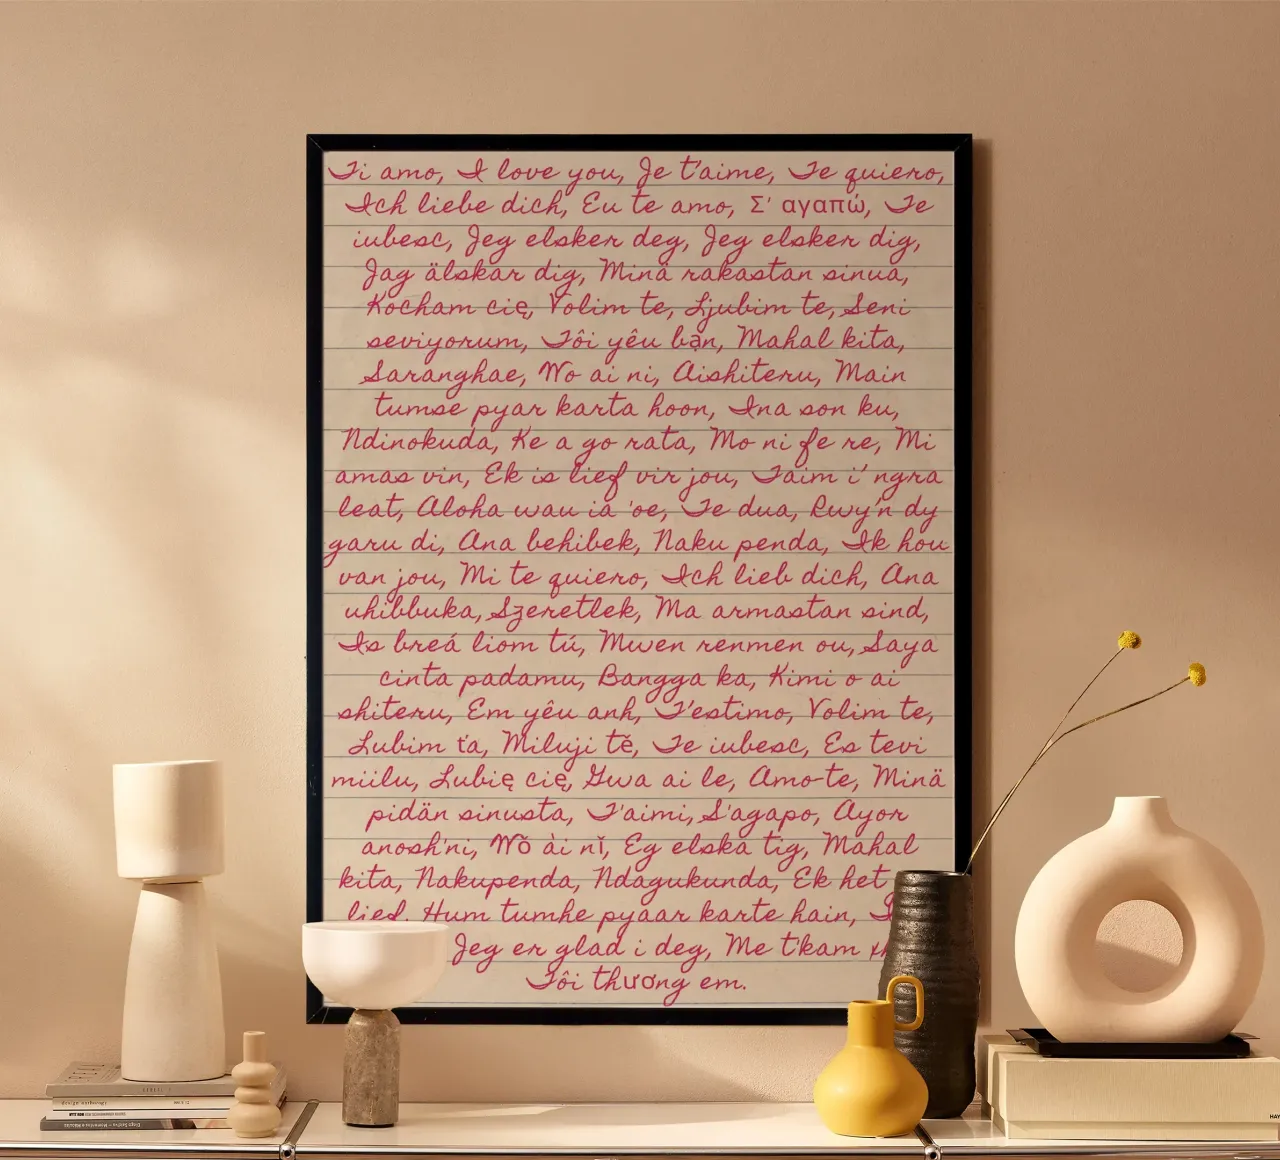 Ti amo, I love you, Je t'aime, Te quiero,
Ich liebe dich, Eu te amo, Σ' αγαπώ, Te
iubesc, Jeg elsker deg, Jeg elsker dig,
Jag älskar dig, Minä rakastan sinua,
Kocham cię, Volim te, Ljubim te, Seni
seviyorum, Tôi yêu bạn, Mahal kita,
Saranghae, Wo ai ni, Aishiteru, Main
tumse pyar karta hoon, Ina son ku,
Ndinokuda, Ke a go rata, Mo ni fe re, Mi
amas vin, Ek is lief vir jou, Taim i' ngra
leat, Aloha wau ia 'oe, Te dua, Rwy'n dy
garu di, Ana behibek, Naku penda, Ik hou
van jou, Mi te quiero, Ich lieb dich, Ana
uhibbuka, Szeretlek, Ma armastan sind,
Is breá liom tú, Mwen renmen ou, Saya
cinta padamu, Bangga ka, Kimi o ai
shiteru, Em yêu anh, T'estimo, Volim te,
Lubim ťa, Miluji tě, Te iubesc, Es tevi
miilu, Lubię cię, Gwa ai le, Amo-te, Minä
pidän sinusta, T'aimi, S'agapo, Ayor
anosh'ni, Wǒ ài nǐ, Eg elska tig, Mahal
kita, Nakupenda, Ndagukunda, Ek het
lief. Hum tumhe pyaar karte hain,
Jeg er glad i deg, Me t'kam
Tôi thương em.